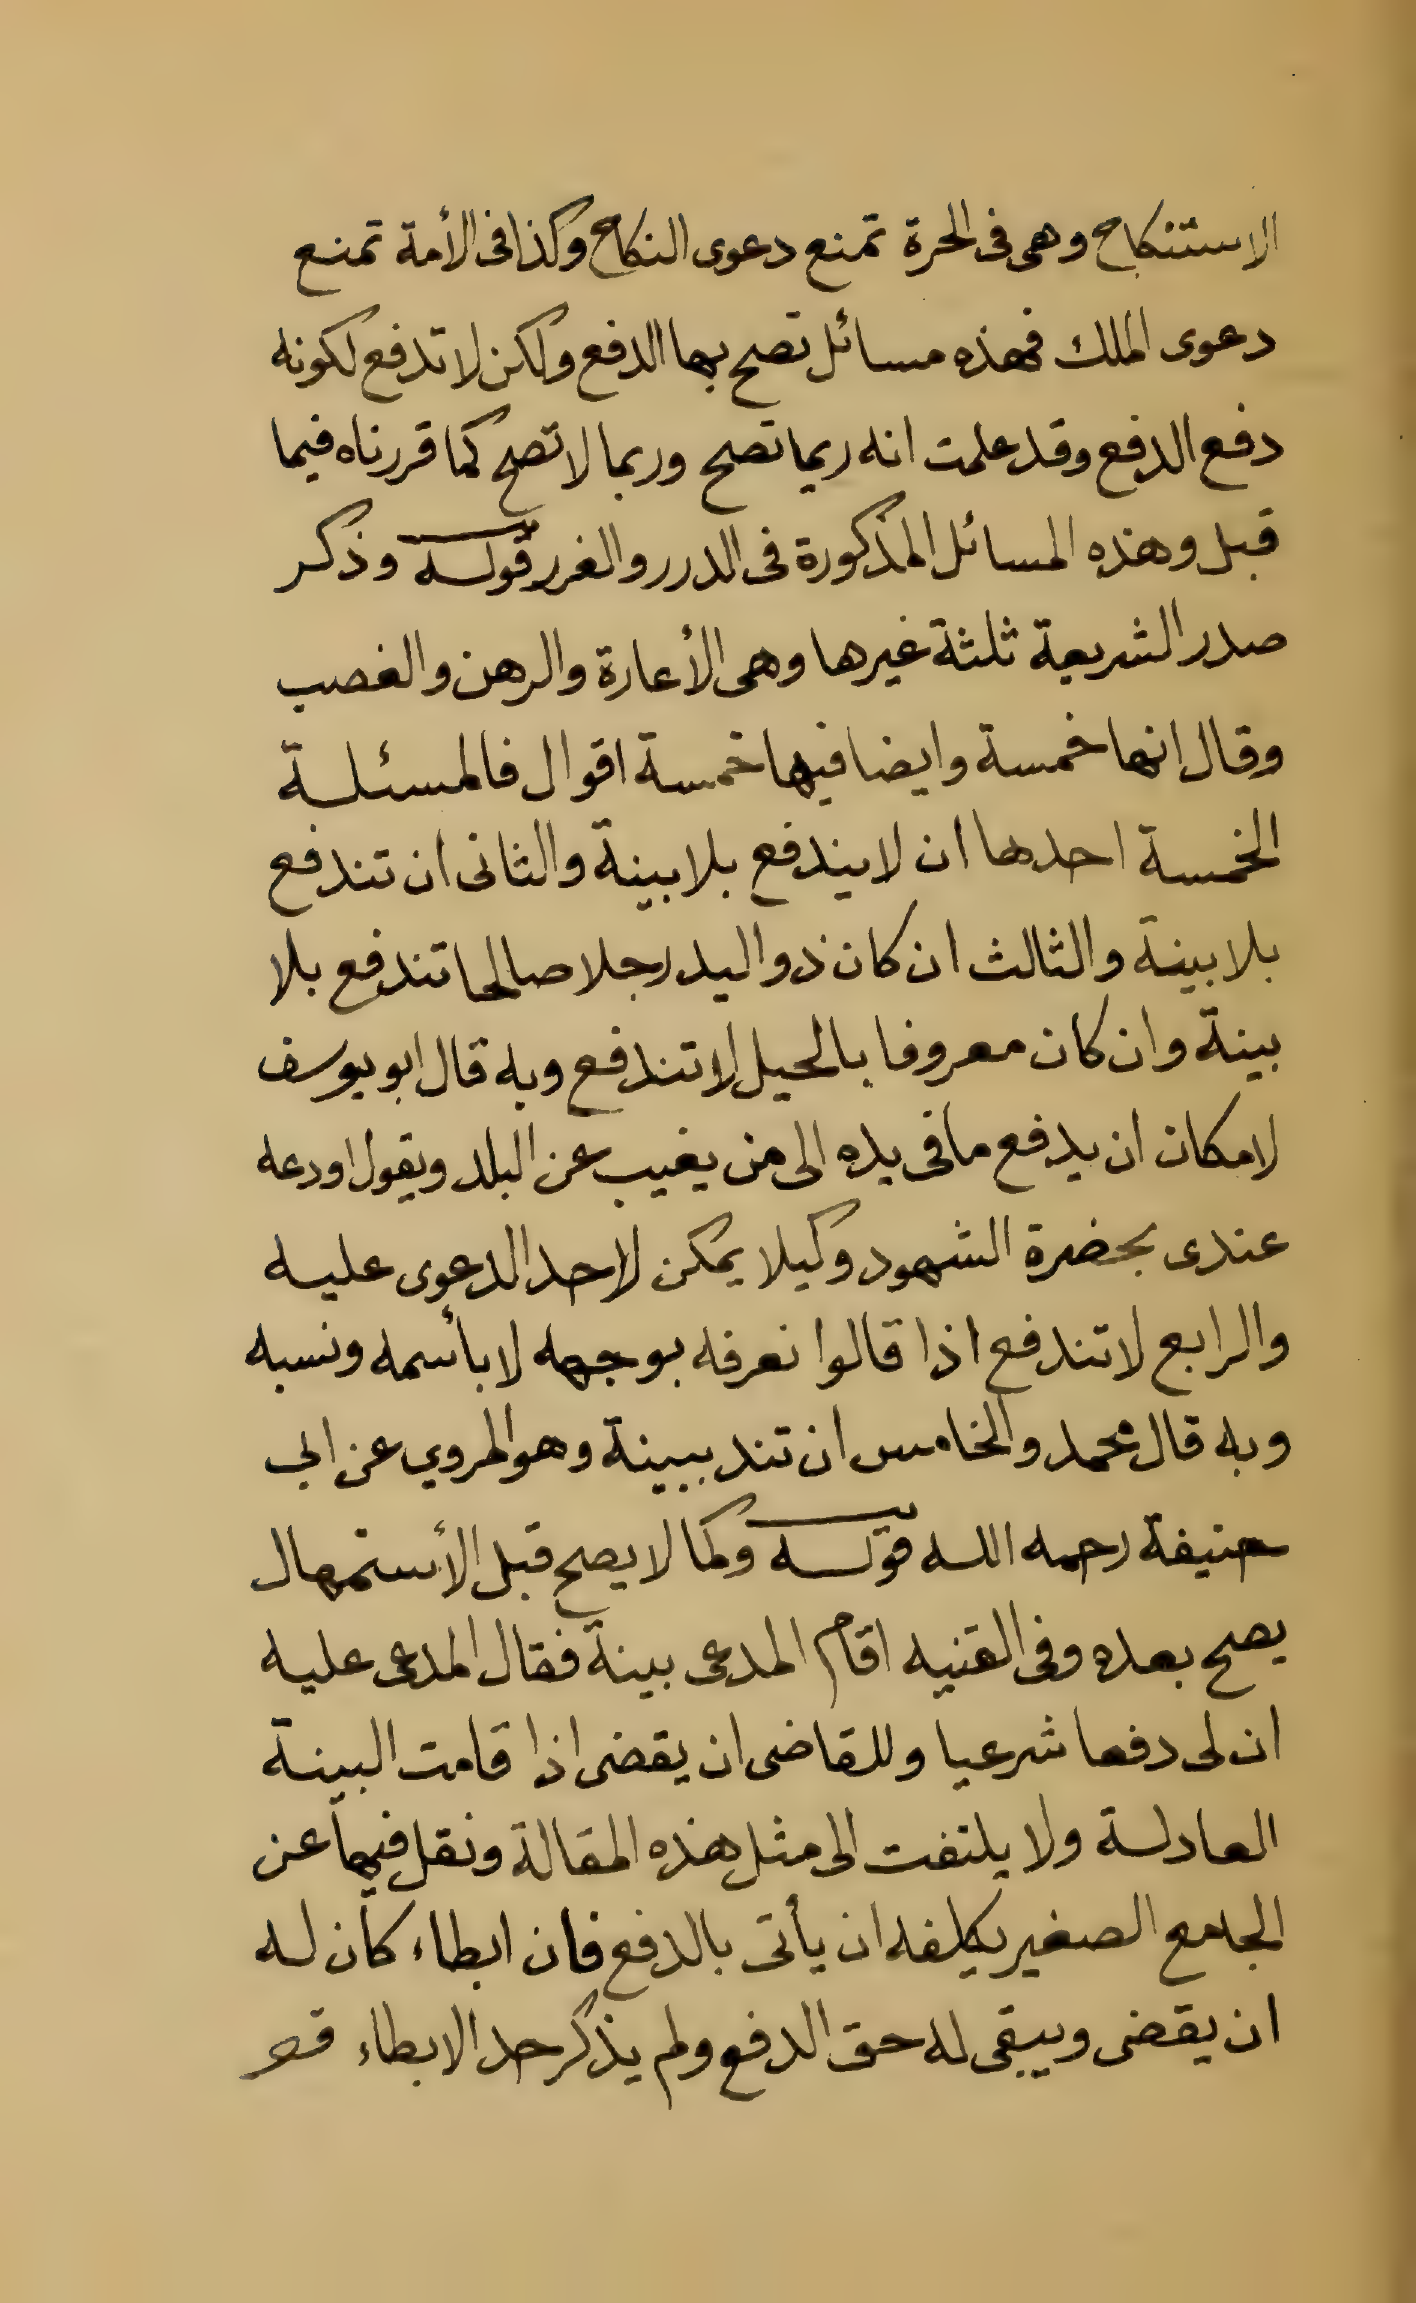 الاستنكاح وهى فى الحرة تمنع دعوى النكاح وكذا فى الأمة تمنع
دعوى الملك فهذه مسائل تصح بها الدفع ولكن لا تدفع لكونه
دفع الدفع وقد علمت انه ربما تصح وربما لا تصح كما قررناه فيما
قبل وهذه المسائل المذكورة فى الدرر والغرر قوله وذكر
صدر الشريعة ثلثة غيرها وهى الأعارة والرهن والغصب
وقال انها خمسة وايضا فيها خمسة اقوال فالمسئلة
الخمسة احدها ان لا يندفع بلا بينة والثانى ان تندفع
بلا بينة والثالث ان كان ذو اليد رجلا صالحا تندفع بلا
بينة وان كان معروفا بالحيل لا تندفع وبه قال ابو يوسف
لامكان ان يدفع ما فى يده الى من يغيب عن البلد ويقول اودعه
عندى بحضرة الشهود وكيلا يمكن لاحد الدعوى عليه
والرابع لا تندفع اذا قالوا نعرفه بوجهه لا بأسمه ونسبه
وبه قال محمد والخامس ان تند ببينة وهو المروي عن ابي
حنيفة رحمه الله قوله وكما لا يصح قبل الأستمهال
يصح بعده وفى القنيه اقام المدعى بينة فقال المدعى عليه
ان لى دفعا شرعيا وللقاضى ان يقضى اذا قامت البينة
العادلة ولا يلتفت الى مثل هذه المقالة ونقل فيها عن
الجامع الصغير يكلفه ان يأتى بالدفع فان ابطاء كان له
ان يقضى ويبقى له حق الدفع ولم يذكر حد الابطاء